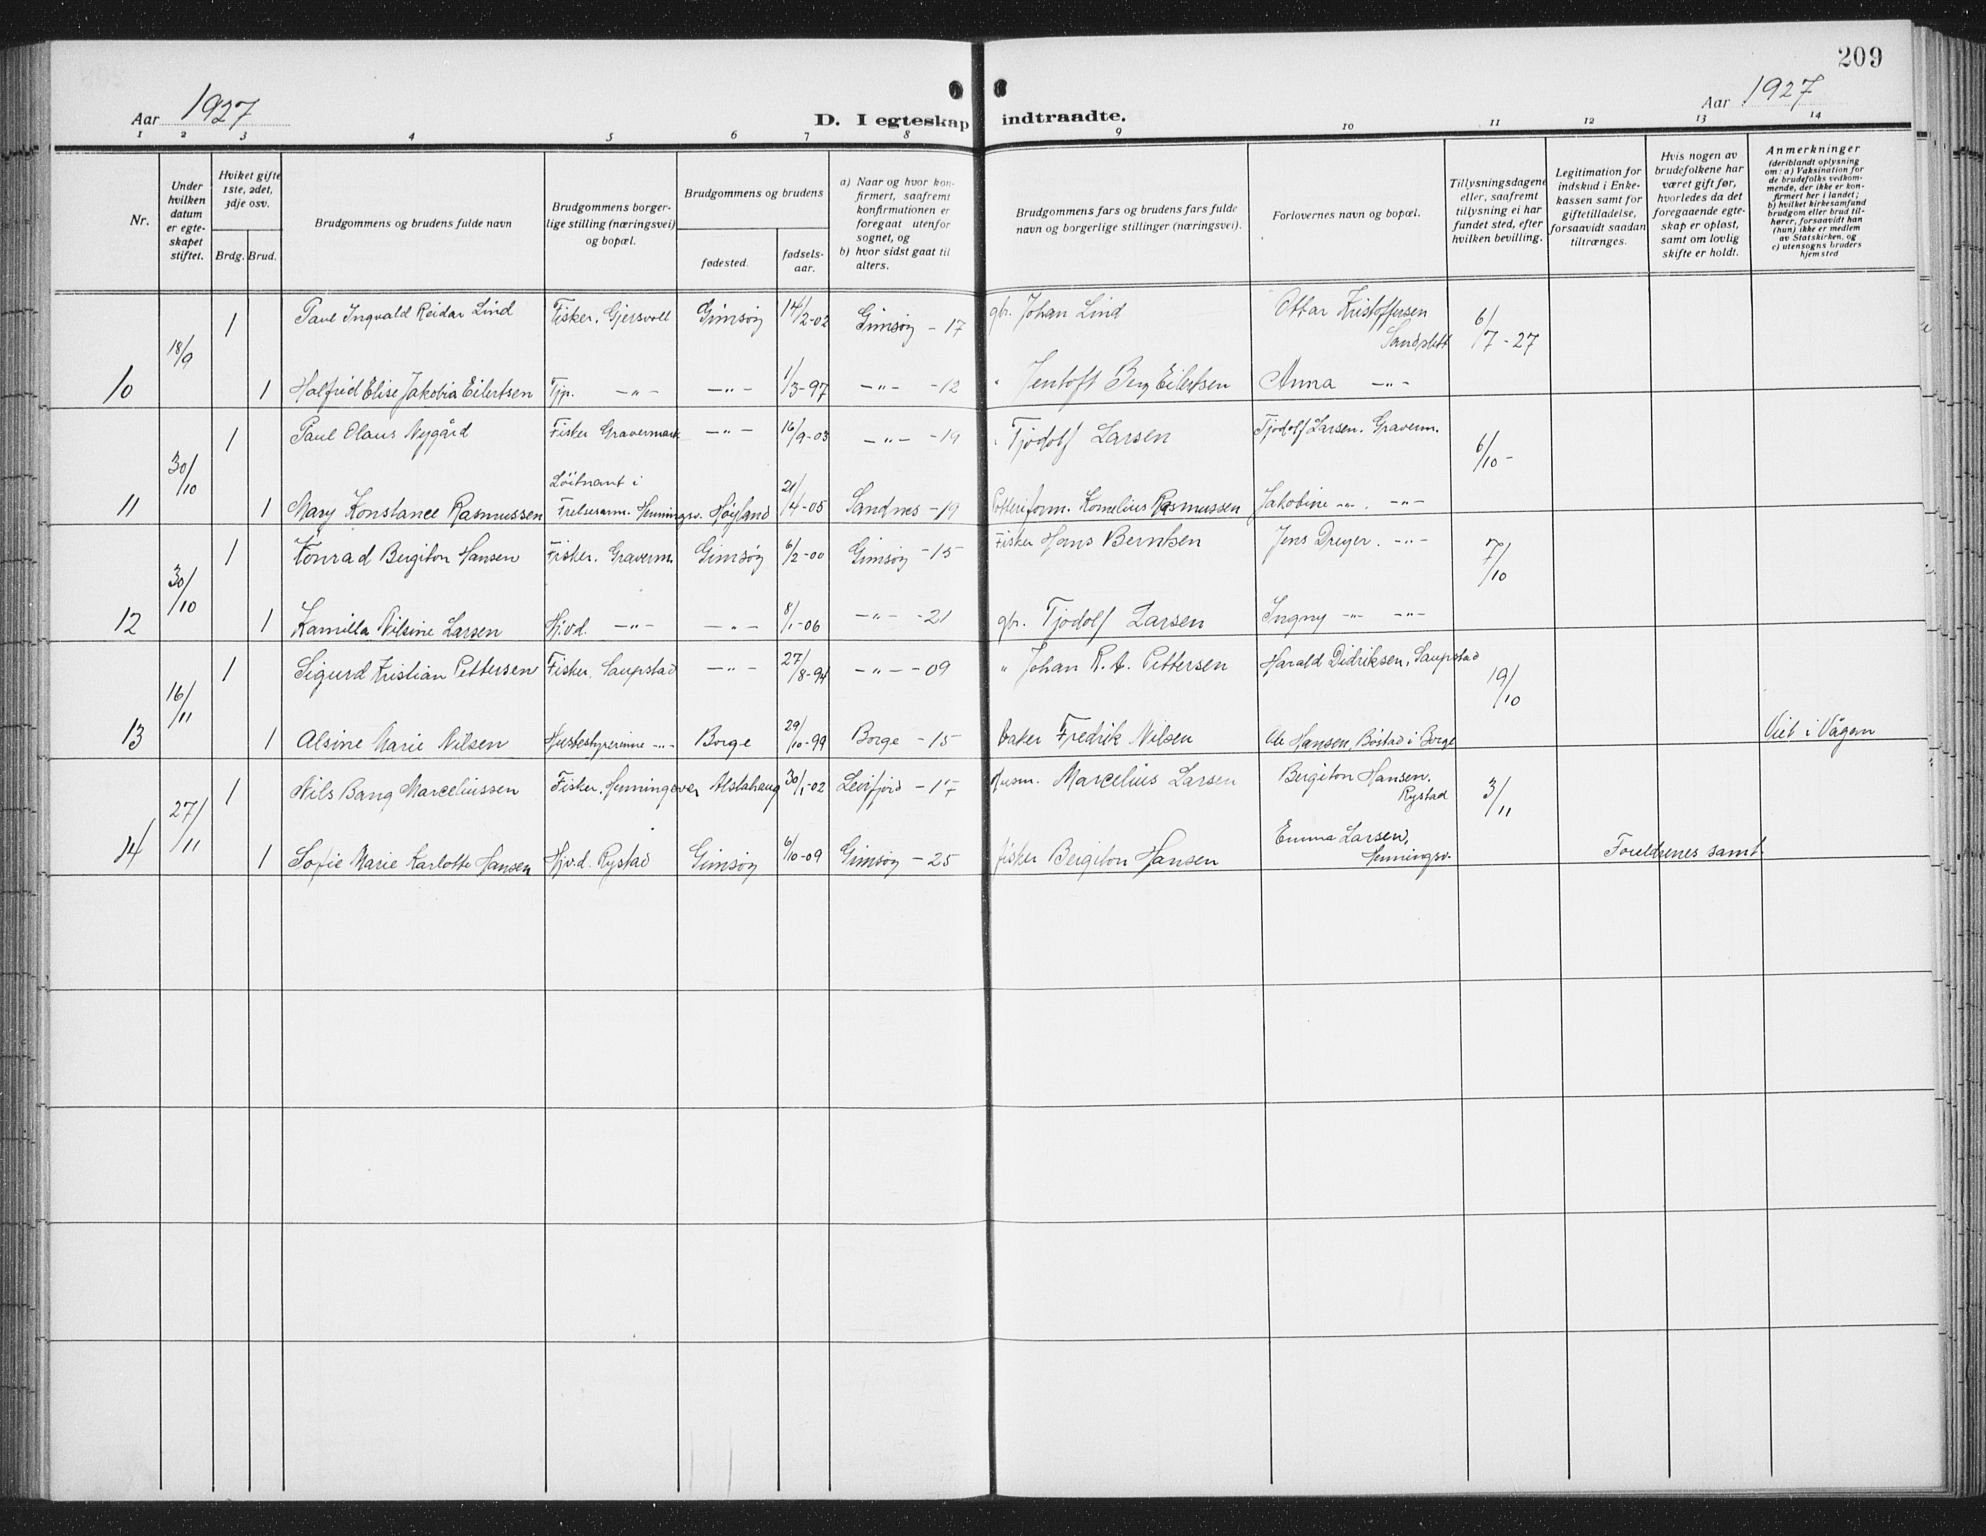 209
Aar 1927
D. I egteskap indtraadte.
Aar 1927
1 2 3 4 5 6 7 8 9 10 11 12 13 14
Nr.
Under hvilken datum er egteskapet stiftet.
Hvilket gifte 1ste, 2det, 3dje osv.
Brdg. Brud.
Brudgommens og brudens fulde navn
Brudgommens borgerlige stilling (næringsvei) og bopæl.
Brudgommens og brudens
fødested.
fødselsaar.
a) Naar og hvor konfirmert, saafremt konfirmationen er foregaat utenfor sognet, og
b) hvor sidst gaat til alters.
Brudgommens fars og brudens fars fulde navn og borgerlige stillinger (næringsvei).
Forlovernes navn og bopæl.
Tillysningsdagene eller, saafremt tillysning ei har fundet sted, efter hvilken bevilling.
Legitimation for indskud i Enkekassen samt for giftetilladelse, forsaavidt saadan tiltrænges.
Hvis nogen av brudefolkene har været gift før, hvorledes da det foregaaende egteskap er opløst, samt om lovlig skifte er holdt.
Anmerkninger
(deriblandt oplysning om: a) Vaksination for de brudefolks vedkommende, der ikke er konfirmert her i landet; b) hvilket kirkesamfund brudgom eller brud tilhører, forsaavidt han (hun) ikke er medlem av Statskirken, og c) utensogns bruders hjemsted
18/9 1 Paul Ingvald Reidar Lind Fisker, Gjersvoll Gimsøy 14/2-02 Gimsøy -17 gbr. Johan Lind Ottar Kristoffersen Sandslett 6/7-27
10 1 Halfrid Elise Jakobia Eilertsen Tjp. -"- -"- 1/3-97 -"- -12 " Jentoft Berg Eilertsen Anna -"-
30/10 1 Paul Olaus Nygård Fisker Gravermark -"- 16/9-03 -"- -19 " Tjodolf Larsen Tjodolf Larsen, Graverm. 6/10-
11 1 Mary Konstance Rasmussen Løitnant i Frelsesarm. Henningsv. Høyland 21/4-05 Sandnes -19 Kornelius Rasmussen Jakobine -"- -"-
30/10 1 Konrad Bergiton Hansen Fisker, Graverm. Gimsøy 6/2-00 Gimsøy -15 Fisker Hans Berntsen Jens Dreyer. -"- 7/10
12 1 Kamilla Nilsine Larsen Hj.v.d. -"- -"- 8/1-06 -"- -21 gbr. Tjodolf Larsen Ingny -"- -"-
16/11 1 Sigurd Kristian Pettersen Fisker, Saupstad -"- 27/8-94 -"- -09 " Johan R. A. Pettersen Harald Didriksen, Saupstad 19/10
13 1 Alsine Marie Nilsen Husbestyrerinne -"- Borge 29/10-99 Borge -15 baker Fredrik Nilsen Ole Hansen, Bøstad i Borge Viet i Vågan
27/11 1 Nils Bang Marceliussen Fisker, Henningsvær Alstahaug 30/1-02 Leirfjord -17 Husm. Marcelius Larsen Bergiton Hansen, Rystad 3/11
14 1 Sofie Marie Karlotte Hansen Hj.v.d. Rystad Gimsøy 6/10-09 Gimsøy -25 fisker Bergiton Hansen Emma Larsen, Henningsv. Foreldrenes samt.